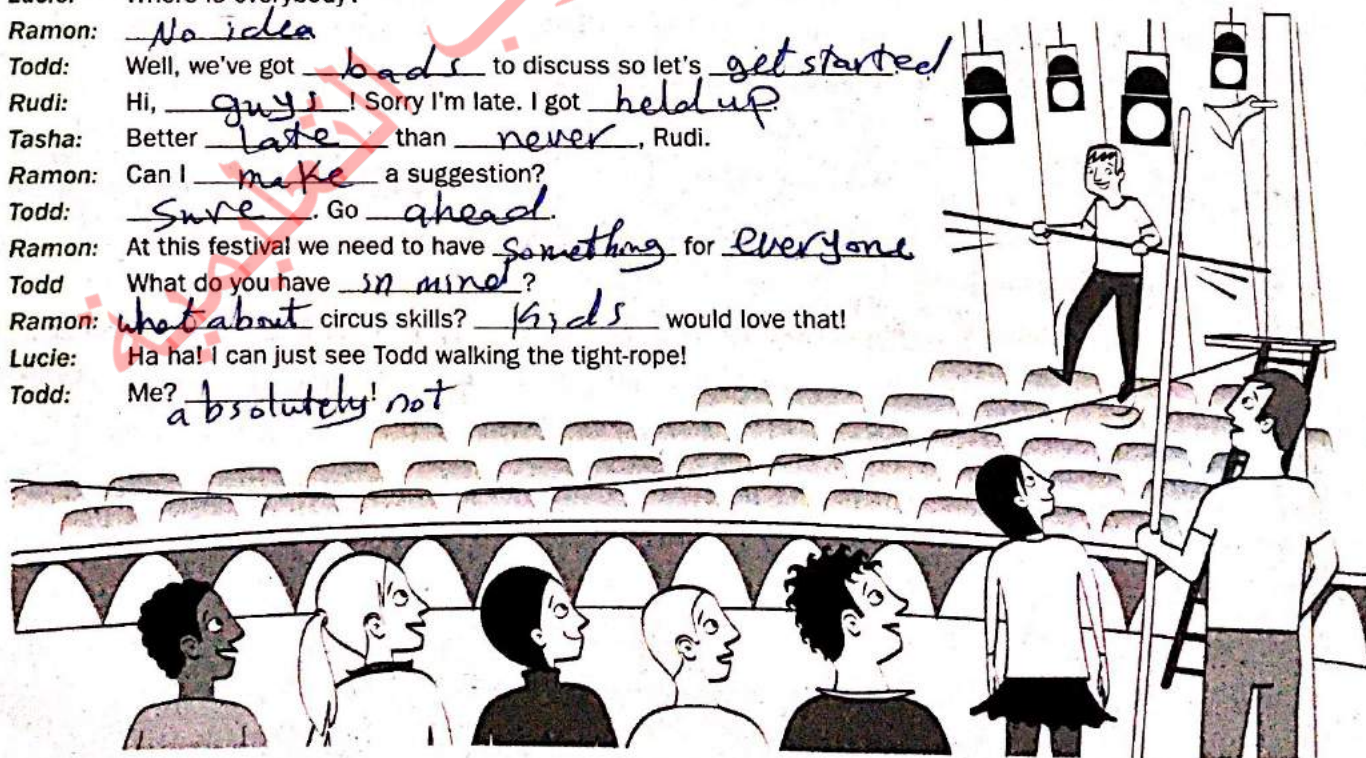 Ramon: No idea
Todd: Well, we've got bads to discuss so let's get started
Rudi: Hi, guys! Sorry I'm late. I got held up.
Tasha: Better Late than never, Rudi.
Ramon: Can I make a suggestion?
Todd: Sure. Go ahead.
Ramon: At this festival we need to have Something for everyone
Todd What do you have in mind?
Ramon: what about circus skills? Kids would love that!
Lucie: Ha ha! I can just see Todd walking the tight-rope!
Todd: Me? absolutely! not